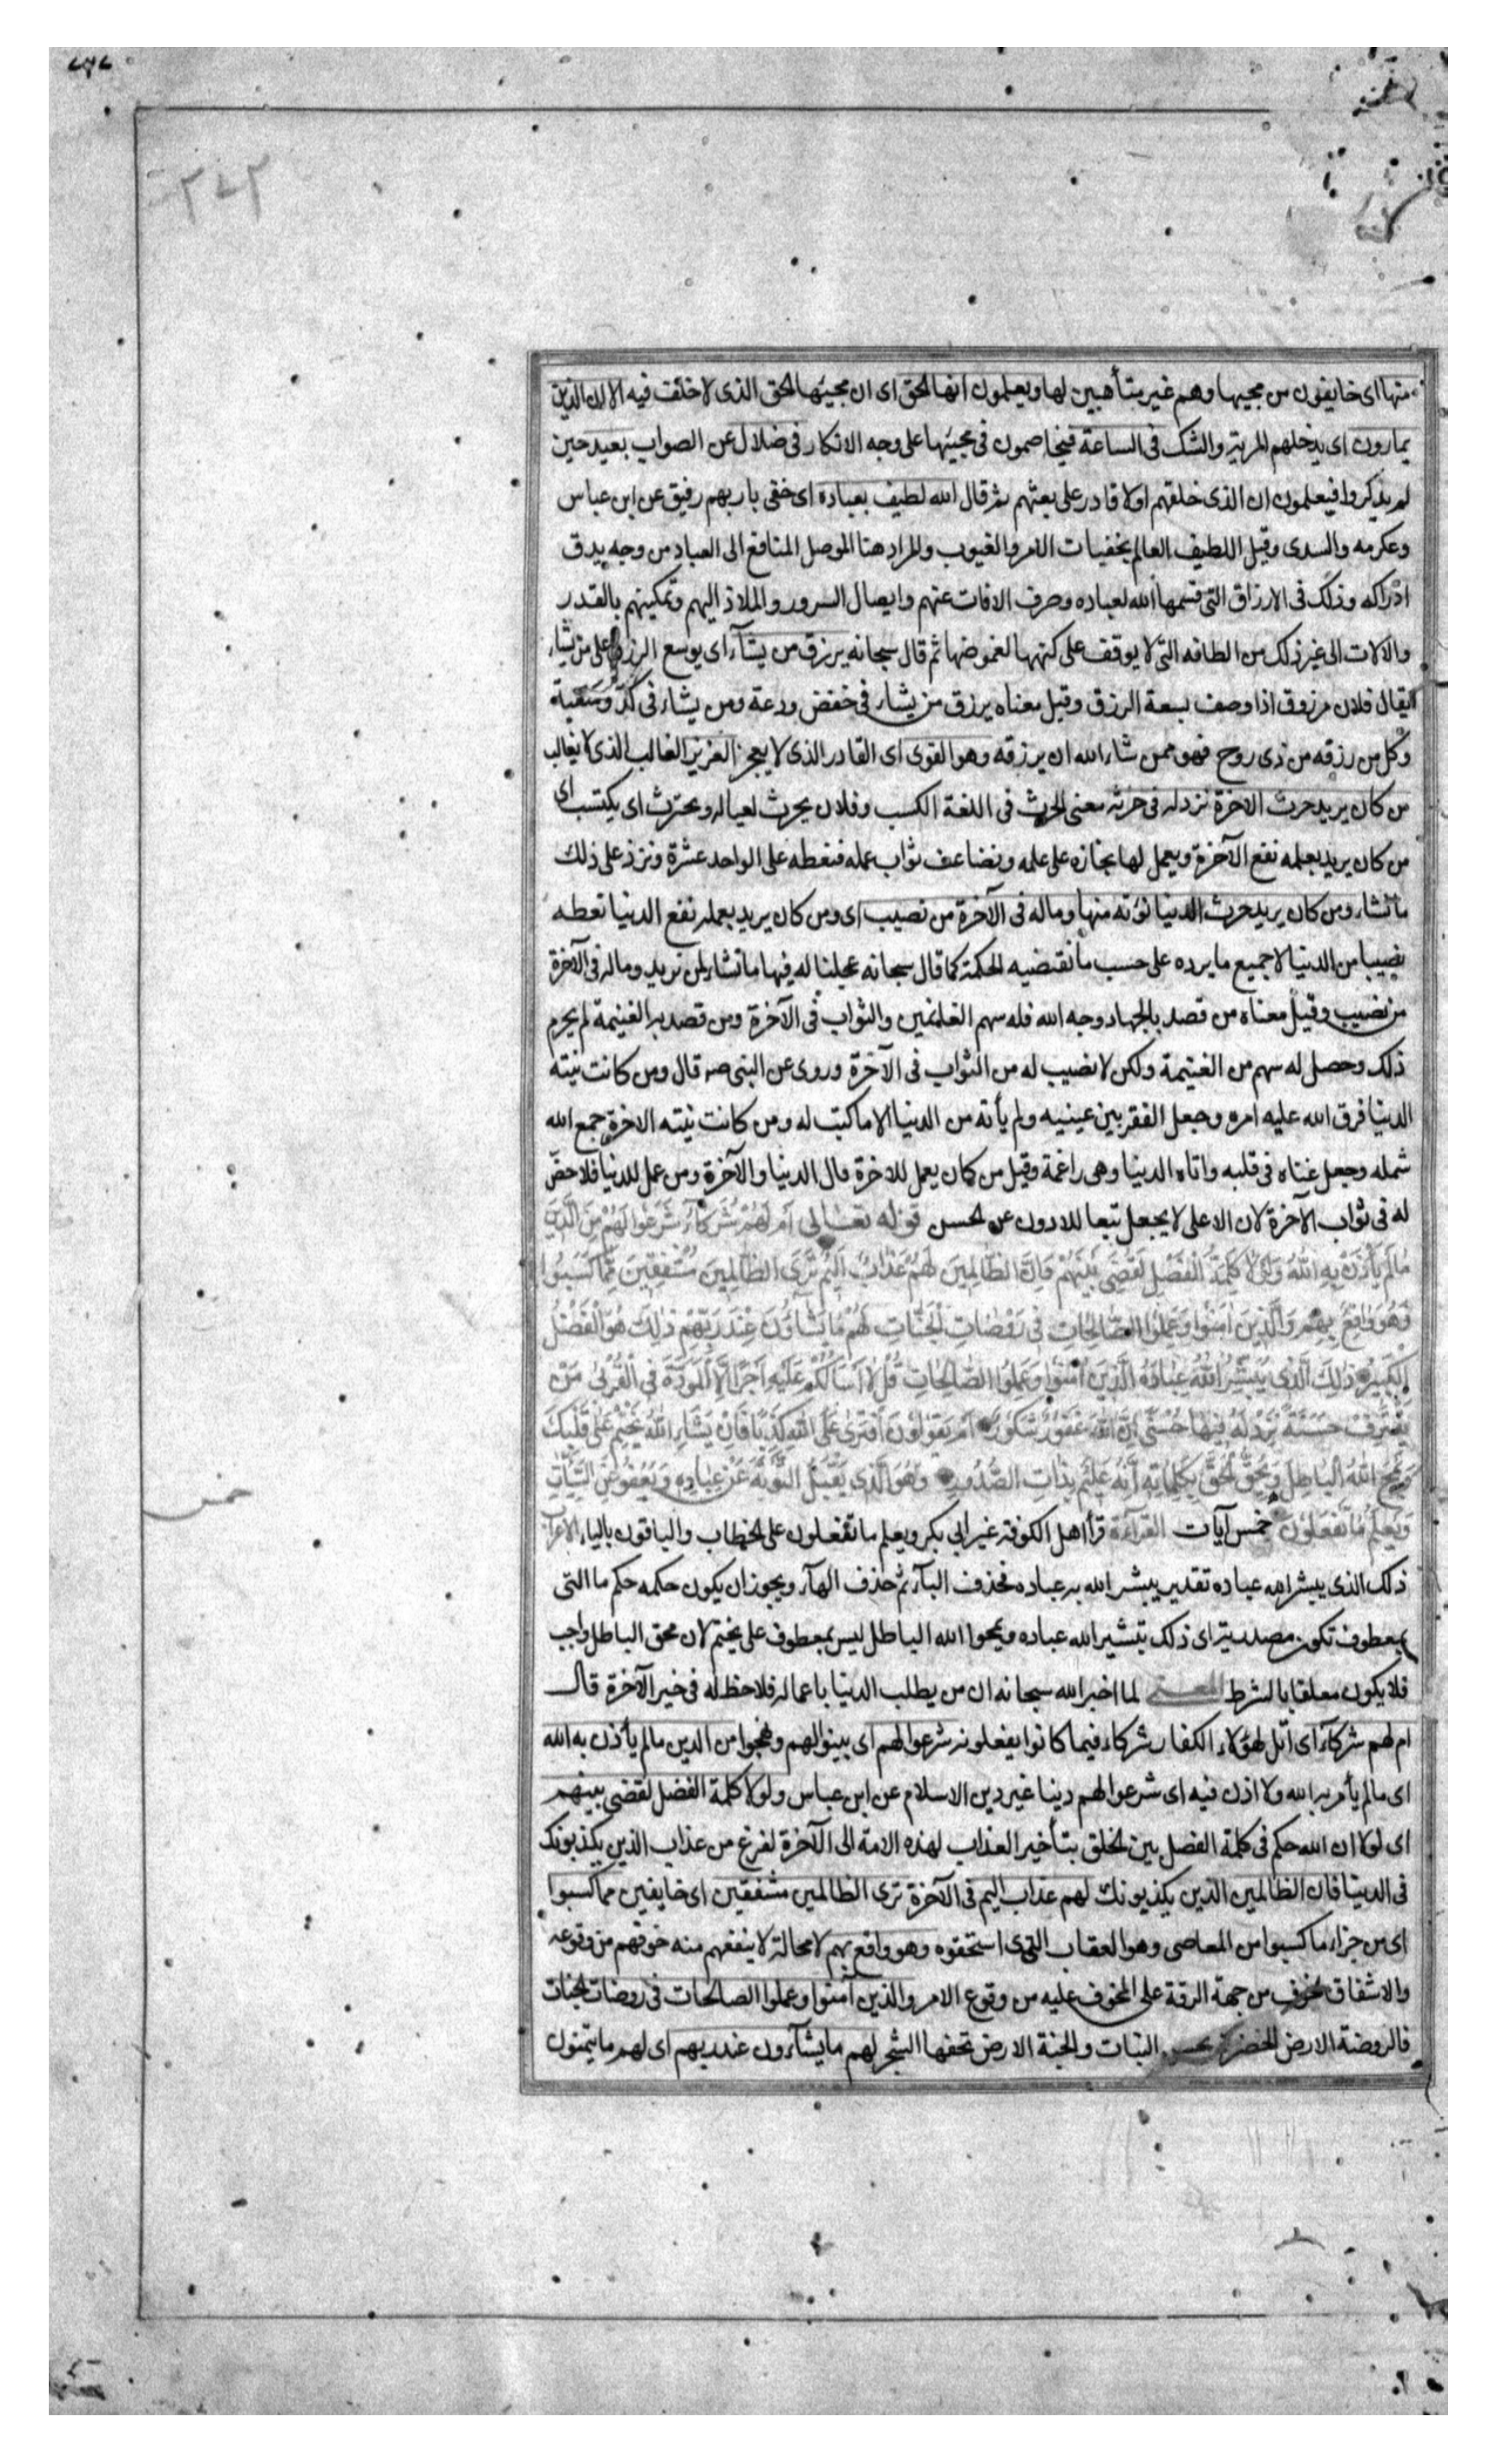 منها اى خايفون من مجيها وهم غير متأهبين لها ويعلمون انها الحق اى ان مجيئها الحق الذى لا خلف فيه الا ان الذين
يمارون اى يدخلهم المرية والشك فى الساعة فيخاصمون فى مجيئها على وجه الانكار فى ضلال عن الصواب بعيد حين
لم يذكروا فيعلمون ان الذى خلقهم اولا قادر على بعثهم ثم قال الله لطيف بعباده اى حفى بار بهم رفيق عن ابن عباس
وعكرمه والسدى وقيل اللطيف العالم بخفيات الامر والغيوب والمراد هنا الموصل المنافع الى العباد من وجه يدق
ادراكه وذلك فى الارزاق التى قسمها الله لعباده وصرف الافات عنهم وايصال السرور والملاذ اليهم وتمكينهم بالقدر
والالات الى غير ذلك من الطافه التى لا يوقف على كنهها لغموضها ثم قال سبحانه يرزق من يشآء اى يوسع الرزق على من يشاء
يقال فلان مرزوق اذا وصف بسعة الرزق وقيل معناه يرزق من يشاء فى خفض ودعة ومن يشاء فى كدّ ومتعبة
وكل من رزقه من ذى روح فهو ممن شاء الله ان يرزقه وهو القوى اى القادر الذى لا يعجز العزيز الغالب الذى لا يغالب
من كان يريد حرث الاخرة نزد له فى حرثه معنى الحرث فى اللغة الكسب وفلان يحرث لعياله ويحترث اى يكتسب اى
من كان يريد بعمله نفع الآخرة ويعمل لها نجازه على عمله ونضاعف ثواب عمله فنعطه على الواحد عشرة ونزد على ذلك
ما نشاء ومن كان يريد حرث الدنيا نؤته منها وماله فى الآخرة من نصيب اى ومن كان يريد بعمله نفع الدنيا نعطه
نصيبا من الدنيا لا جميع ما يرده على حسب ما تقتضيه الحكمة كما قال سبحانه عجلنا له فيها ما نشاء لمن نريد وماله فى الآخرة
من نصيب وقيل معناه من قصد بالجهاد وجه الله فله سهم الغانمين والثواب فى الآخرة ومن قصد به الغنيمة لم يحرم
ذلك وحصل له سهم من الغنيمة ولكن لا نصيب له من الثواب فى الآخرة وروى عن النبى صه قال ومن كانت نيته
الدنيا فرق الله عليه امره وجعل الفقر بين عينيه ولم يأته من الدنيا الا ما كتب له ومن كانت نيته الاخرة جمع الله
شمله وجعل غناه فى قلبه واتاه الدنيا وهى راغمة وقيل من كان يعمل للاخرة مال الدنيا والآخرة ومن عمل للدنيا فلا حض
له فى ثواب الآخرة لان الاعلى لا يجعل تبعا للادون عن الحسن قوله تعالى اَم لَهُمْ شُرَكَآءُ شَرَعُوا لَهُمْ مِنَ الدِّينِ
مَا لَمْ يَأْذَنْ بِهِ اللهُ وَلَوْلَا كَلِمَةُ الْفَصْلِ لَقُضِىَ بَيْنَهُمْ وَاِنَّ الظَّالِمِينَ لَهُمْ عَذَابٌ اَلِيمٌ تَرَى الظَّالِمِينَ مُشْفِقِينَ مِمَّا كَسَبُوا
وَهُوَ وَاقِعٌ بِهِمْ وَالَّذِينَ اٰمَنُوا وَعَمِلُوا الصَّالِحَاتِ فِى رَوْضَاتِ الْجَنَّاتِ لَهُمْ مَا يَشَآؤُنَ عِنْدَ رَبِّهِمْ ذٰلِكَ هُوَ الْفَضْلُ
الْكَبِيرُ ذٰلِكَ الَّذِى يُبَشِّرُ اللهُ عِبَادَهُ الَّذِينَ اٰمَنُوا وَعَمِلُوا الصَّالِحَاتِ قُلْ لَا اَسْأَلُكُمْ عَلَيْهِ اَجْرًا اِلَّا الْمَوَدَّةَ فِى الْقُرْبٰى وَمَنْ
يَقْتَرِفْ حَسَنَةً نَزِدْ لَهُ فِيهَا حُسْنًا اِنَّ اللهَ غَفُورٌ شَكُورٌ اَمْ يَقُولُونَ افْتَرٰى عَلَى اللهِ كَذِبًا فَاِنْ يَشَاءِ اللهُ يَخْتِمْ عَلٰى قَلْبِكَ
وَيَمْحُ اللهُ الْبَاطِلَ وَيُحِقُّ الْحَقَّ بِكَلِمَاتِهِ اِنَّهُ عَلِيمٌ بِذَاتِ الصُّدُورِ وَهُوَ الَّذِى يَقْبَلُ التَّوْبَةَ عَنْ عِبَادِهِ وَيَعْفُو عَنِ السَّيِّئَاتِ
وَيَعْلَمُ مَا تَفْعَلُونَ خمس آيات القرآءة قرأ اهل الكوفة غير ابى بكر ويعلم ما تفعلون على الخطاب والباقون بالياء الاعراب
ذلك الذى يبشر الله عباده تقديره يبشر الله به عباده فحذف البآء ثم حذف الهآء ويجوز ان يكون حكمه حكم ما التى
تكون مصدرية اى ذلك تبشير الله عباده ويمحوا الله الباطل ليس بمعطوف على يختم لان محق الباطل واجب
فلا يكون معلقا بالشرط المعنى لما اخبر الله سبحانه ان من يطلب الدنيا باعماله فلا حظ له فى خير الآخرة قال
ام لهم شركآء اى ابل لهؤلاء الكفار شركاء فيما كانوا يفعلونه شرعوا لهم اى بينوا لهم ونهجوا من الدين ما لم يأذن به الله
اى ما لم يأمر به الله ولا اذن فيه اى شرعوا لهم دينا غير دين الاسلام عن ابن عباس ولولا كلمة الفصل لقضى بينهم
اى لولا ان الله حكم فى كلمة الفصل بين الخلق بتأخير العذاب لهذه الامة الى الآخرة لفرغ من عذاب الذين يكذبونك
فى الدنيا فان الظالمين الذين يكذبونك لهم عذاب اليم فى الآخرة ترى الظالمين مشفقين اى خايفين مما كسبوا
اى من جزاء ما كسبوا من المعاصى وهو العقاب الذى استحقوه وهو واقع بهم لا محالة لا ينفعهم منه خوفهم من وقوعه
والاشفاق الخوف من جهة الرقة على المخوف عليه من وقوع الامر والذين آمنوا وعملوا الصالحات فى روضات الجنات
فالروضة الارض الخضرة بحسن النبات والجنة الارض تحفها الشجر لهم ما يشآءون عند ربهم اى لهم ما يتمنون
خمس